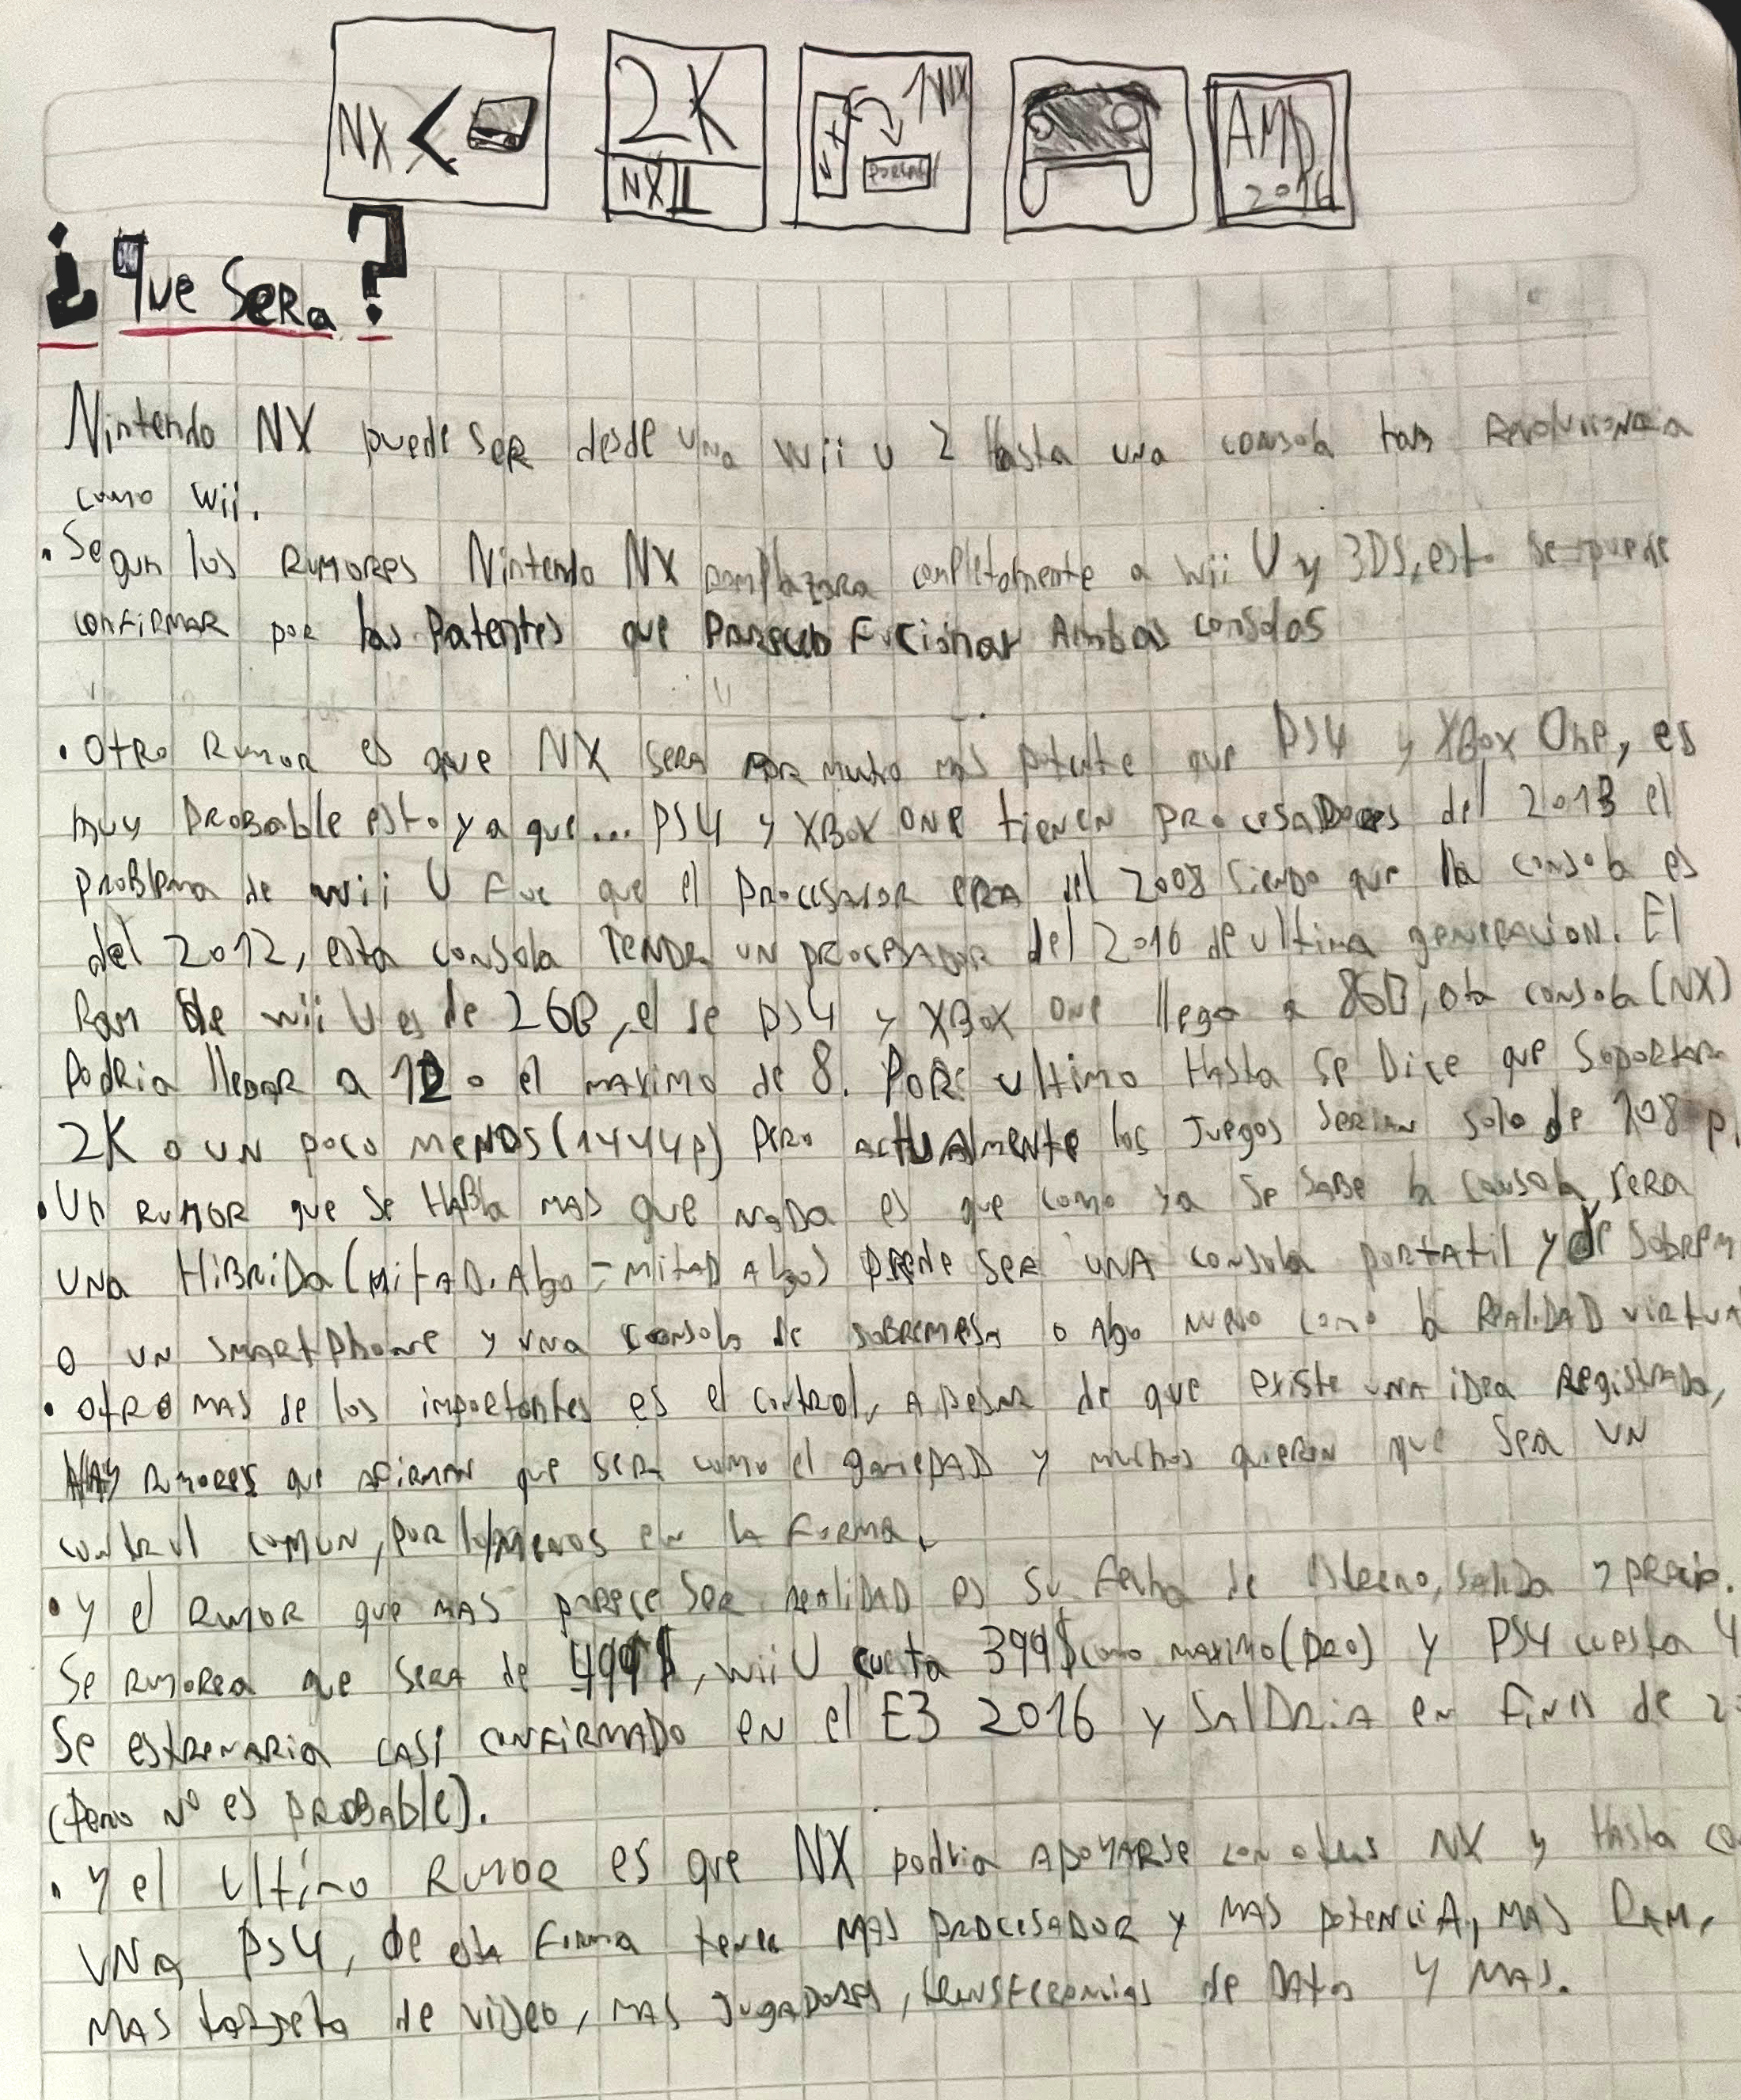 NX <
2K
NXII
NX
NX
PORTATIL
AMD
2016
¿Que Sera?
Nintendo NX puede ser desde una wii u 2 Hasta una consola tan Revolucionaria
como wii.
• Segun los RUMORES Nintendo NX remplazara completamente a wii U y 3DS, esto se puede
confirmar por las Patentes que Parecen Fucionar Ambas consolas
• Otro Rumor es que NX sera por mucho mas potente que PS4 y XBox One, es
muy probable esto ya que... PS4 y XBox one tienen procesadores del 2013 el
problema de wii U Fue que el procesador era del 2008 siendo que la consola es
del 2012, esta consola TENDRA un procesador del 2016 de ultima generacion. El
Ram de wii U es de 2GB, el de PS4 y XBox one llega a 8GB, esta consola (NX)
Podria llegar a 12 o el maximo de 8. Por ultimo Hasta se Dice que Soportara
2K o un poco menos (1444p) pero actualmente los Juegos serian solo de 108 p.
• Un rumor que se Habla mas que nada es que como ya se sabe la consola sera
una Hibrida (mitad Algo - mitad Algo) puede ser una consola portatil y de sobrem
o un smartphone y una consola de sobremesa o Algo nuevo como la Realidad virtua
• otro mas de los importantes es el control, a pesar de que existe una idea Registrada,
HAY rumores que afirman que sera como el gamePAD y muchos quieren que sea un
control comun, por lo menos en la Forma.
• y el rumor que mas parece ser realidad es su fecha de estreno, salida y precio.
Se rumorea que sera de 499$, wii U cuesta 399$ como maximo (pro) y PS4 cuesta 4
Se estrenaria casi confirmado en el E3 2016 y Saldria en fines de 2
(pero no es probable).
• y el ultimo Rumor es que NX podria apoyarse con otras NX y Hasta co
una PS4, de esta Forma tener mas procesador y mas potencia, mas Ram,
mas tarjeta de video, mas jugadores, transferencias de Datos y mas.